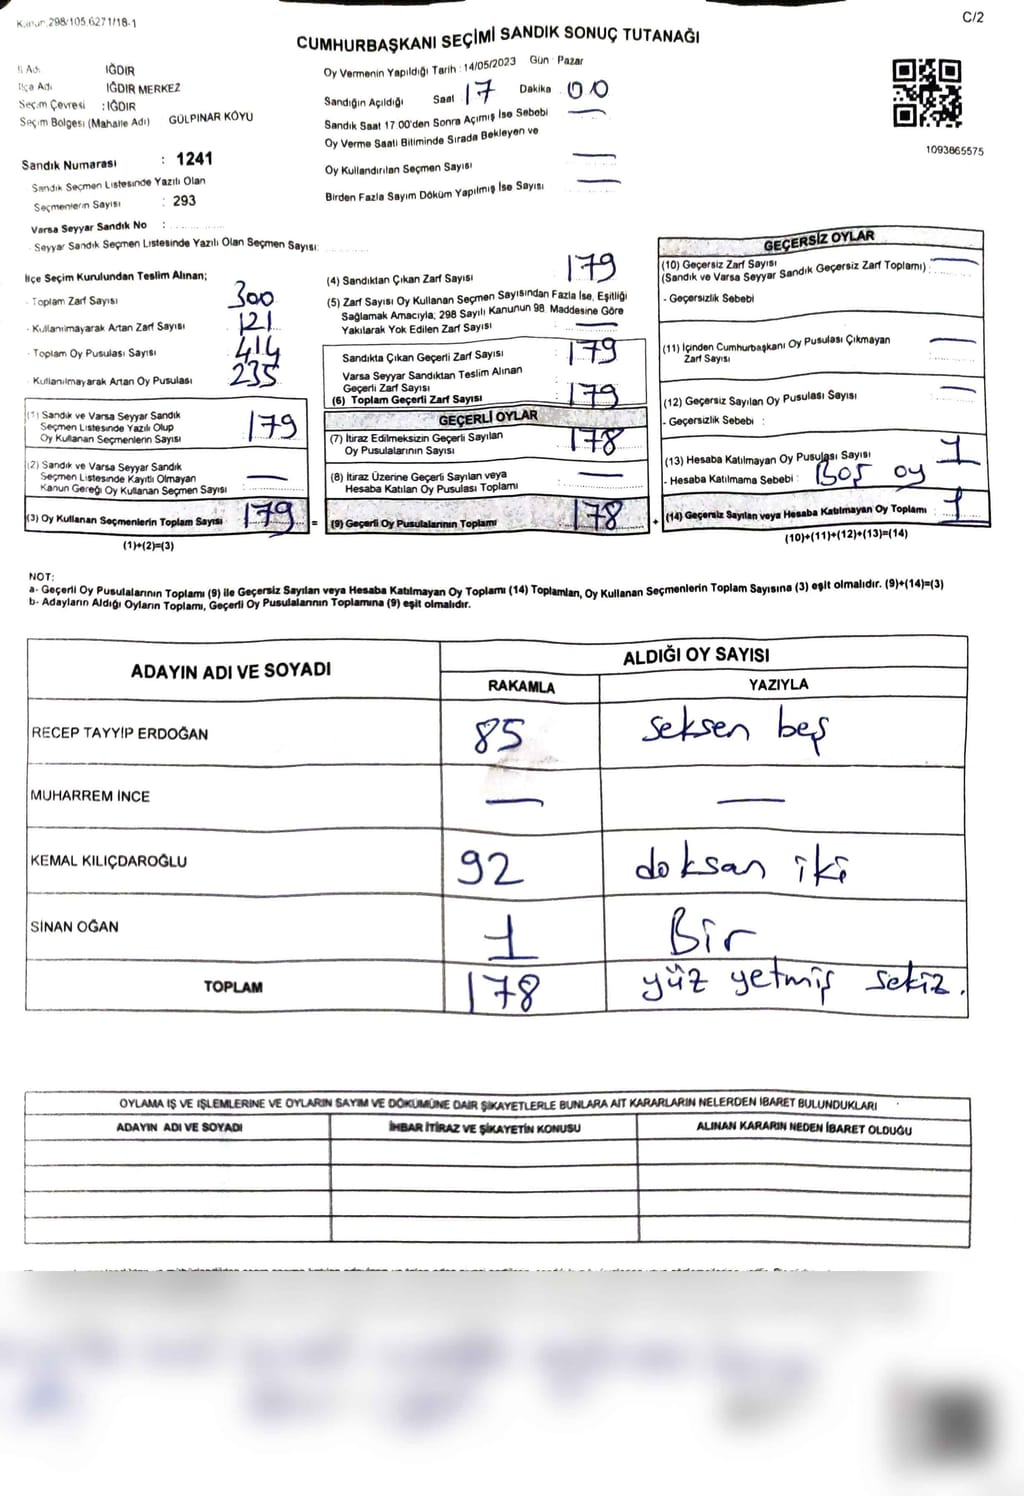 Kanun,298/105,6271/18-1
C/2
CUMHURBAŞKANI SEÇİMİ SANDIK SONUÇ TUTANAĞI
İl Adı IĞDIR
İlçe Adı IĞDIR MERKEZ
Seçim Çevresi : IĞDIR
Seçim Bölgesi (Mahalle Adı) GÜLPINAR KÖYÜ
Sandık Numarası : 1241
Sandık Seçmen Listesinde Yazılı Olan
Seçmenlerin Sayısı : 293
Varsa Seyyar Sandık No :
- Seyyar Sandık Seçmen Listesinde Yazılı Olan Seçmen Sayısı:
Oy Vermenin Yapıldığı Tarih : 14/05/2023 Gün : Pazar
Sandığın Açıldığı Saat 17 Dakika 00
Sandık Saat 17:00'den Sonra Açımış İse Sebebi —
Oy Verme Saati Bitiminde Sırada Bekleyen ve
Oy Kullandırılan Seçmen Sayısı —
Birden Fazla Sayım Döküm Yapılmış İse Sayısı —
1093865575
İlçe Seçim Kurulundan Teslim Alınan;
- Toplam Zarf Sayısı 300
- Kullanılmayarak Artan Zarf Sayısı 121
- Toplam Oy Pusulası Sayısı 414
- Kullanılmayarak Artan Oy Pusulası 235
(1) Sandık ve Varsa Seyyar Sandık
Seçmen Listesinde Yazılı Olup
Oy Kullanan Seçmenlerin Sayısı 179
(2) Sandık ve Varsa Seyyar Sandık
Seçmen Listesinde Kayıtlı Olmayan
Kanun Gereği Oy Kullanan Seçmen Sayısı —
(3) Oy Kullanan Seçmenlerin Toplam Sayısı 179
(1)+(2)=(3)
(4) Sandıktan Çıkan Zarf Sayısı 179
(5) Zarf Sayısı Oy Kullanan Seçmen Sayısından Fazla İse, Eşitliği
Sağlamak Amacıyla; 298 Sayılı Kanunun 98. Maddesine Göre
Yakılarak Yok Edilen Zarf Sayısı —
Sandıkta Çıkan Geçerli Zarf Sayısı 179
Varsa Seyyar Sandıktan Teslim Alınan
Geçerli Zarf Sayısı
(6) Toplam Geçerli Zarf Sayısı 179
GEÇERLİ OYLAR
(7) İtiraz Edilmeksizin Geçerli Sayılan
Oy Pusulalarının Sayısı 178
(8) İtiraz Üzerine Geçerli Sayılan veya
Hesaba Katılan Oy Pusulası Toplamı —
= (9) Geçerli Oy Pusulalarının Toplamı 178 +
GEÇERSİZ OYLAR
(10) Geçersiz Zarf Sayısı —
(Sandık ve Varsa Seyyar Sandık Geçersiz Zarf Toplamı)
- Geçersizlik Sebebi
(11) İçinden Cumhurbaşkanı Oy Pusulası Çıkmayan
Zarf Sayısı —
(12) Geçersiz Sayılan Oy Pusulası Sayısı —
- Geçersizlik Sebebi :
(13) Hesaba Katılmayan Oy Pusulası Sayısı 1
- Hesaba Katılmama Sebebi : Boş oy
(14) Geçersiz Sayılan veya Hesaba Katılmayan Oy Toplamı 1
(10)+(11)+(12)+(13)=(14)
NOT:
a- Geçerli Oy Pusulalarının Toplamı (9) ile Geçersiz Sayılan veya Hesaba Katılmayan Oy Toplamı (14) Toplamları, Oy Kullanan Seçmenlerin Toplam Sayısına (3) eşit olmalıdır. (9)+(14)=(3)
b- Adayların Aldığı Oyların Toplamı, Geçerli Oy Pusulalarının Toplamına (9) eşit olmalıdır.
ADAYIN ADI VE SOYADI
ALDIĞI OY SAYISI
RAKAMLA YAZIYLA
RECEP TAYYİP ERDOĞAN 85 seksen beş
MUHARREM İNCE — —
KEMAL KILIÇDAROĞLU 92 doksan iki
SİNAN OĞAN 1 Bir
TOPLAM 178 yüz yetmiş sekiz.
OYLAMA İŞ VE İŞLEMLERİNE VE OYLARIN SAYIM VE DÖKÜMÜNE DAİR ŞİKAYETLERLE BUNLARA AİT KARARLARIN NELERDEN İBARET BULUNDUKLARI
ADAYIN ADI VE SOYADI İHBAR İTİRAZ VE ŞİKAYETİN KONUSU ALINAN KARARIN NEDEN İBARET OLDUĞU